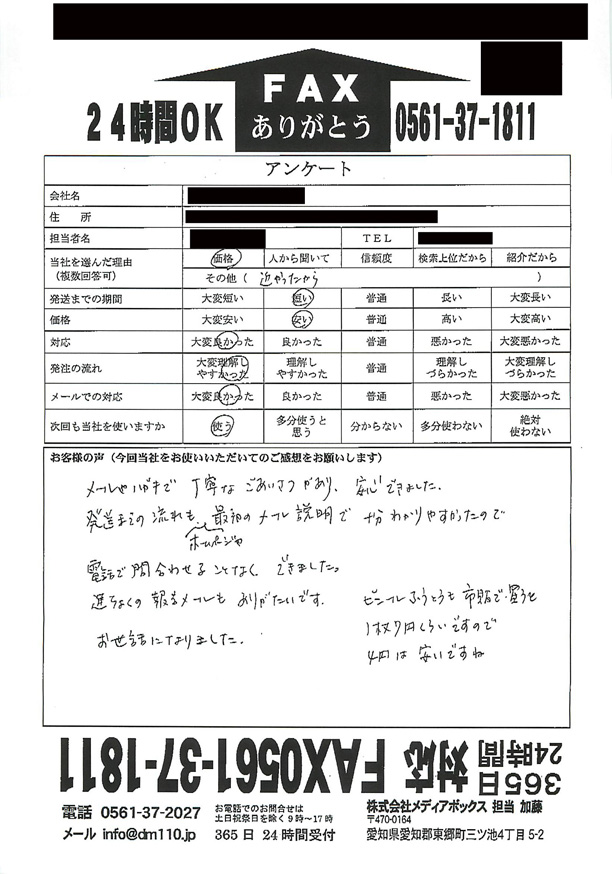 FAX
ありがとう
24時間OK
0561-37-1811
アンケート
会社名
住 所
担当者名 TEL
当社を選んだ理由 (複数回答可) 価格 人から聞いて 信頼度 検索上位だから 紹介だから
その他 ( 近かったから )
発送までの期間 大変短い 短い 普通 長い 大変長い
価格 大変安い 安い 普通 高い 大変高い
対応 大変良かった 良かった 普通 悪かった 大変悪かった
発注の流れ 大変理解しやすかった 理解しやすかった 普通 理解しづらかった 大変理解しづらかった
メールでの対応 大変良かった 良かった 普通 悪かった 大変悪かった
次回も当社を使いますか 使う 多分使うと思う 分からない 多分使わない 絶対使わない
お客様の声(今回当社をお使いいただいてのご感想をお願いします)
メールやハガキで 丁寧なごあいさつがあり、安心できました。
発送までの流れも、最初のメール説明で 十分わかりやすかったので
ホームページや
電話で問合わせることなく できました。
進ちょくの報告メールも ありがたいです。
お世話になりました。
ビニールふうとうも市販で買うと
1枚7円くらいですので
4円は安いですね
365日 24時間 対応 FAX0561-37-1811
電話 0561-37-2027
メール info@dm110.jp
お電話でのお問合せは
土日祝祭日を除く9時〜17時
365日 24時間受付
株式会社メディアボックス 担当 加藤
〒470-0164
愛知県愛知郡東郷町三ツ池4丁目5-2